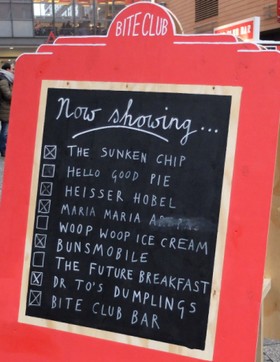 BITE CLUB
Now showing...
THE SUNKEN CHIP
HELLO GOOD PIE
HEISSER HOBEL
MARIA MARIA
WOOP WOOP ICE CREAM
BUNSMOBILE
THE FUTURE BREAKFAST
DR TO'S DUMPLINGS
BITE CLUB BAR